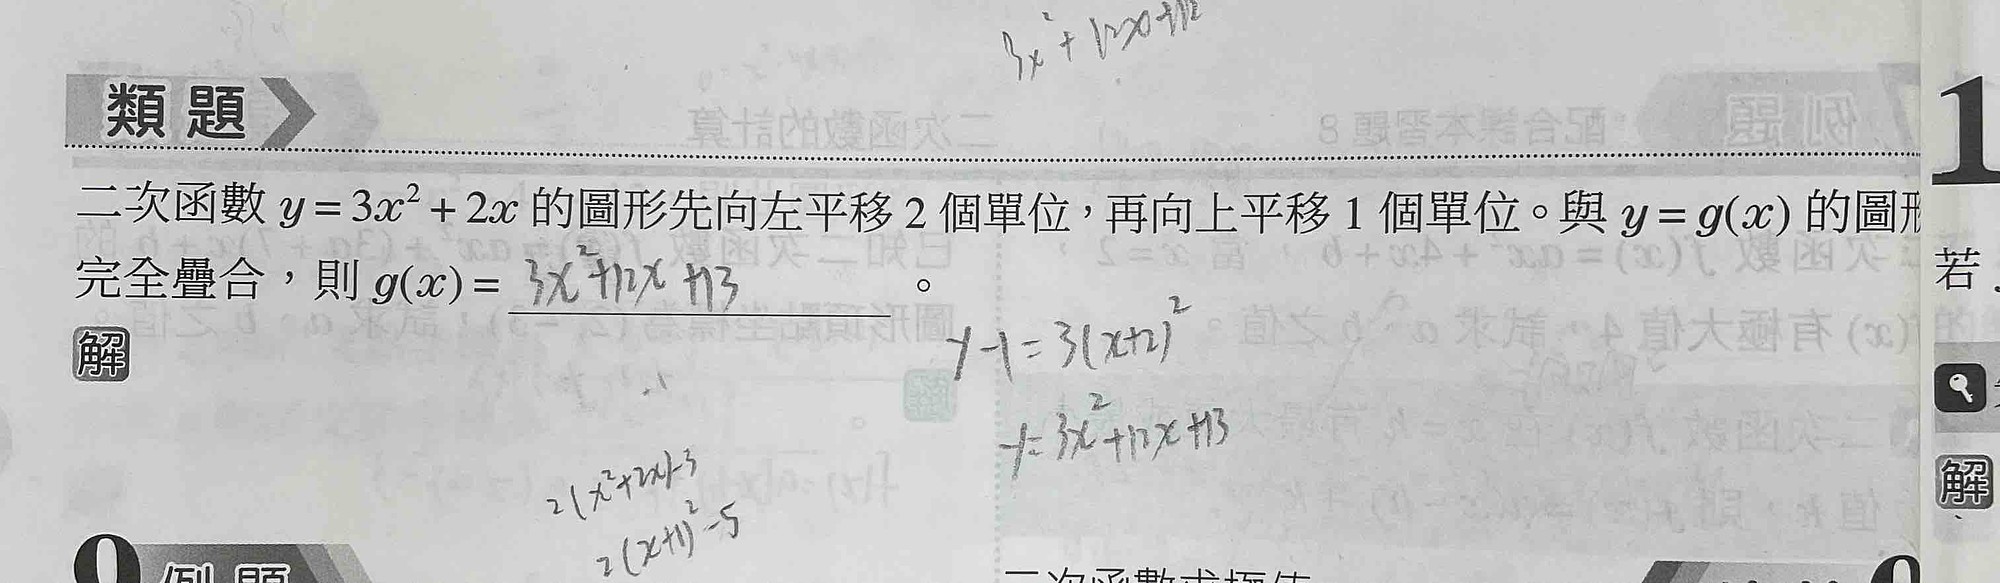 3x²+12x+12
類題
二次函數 y = 3x² + 2x 的圖形先向左平移 2 個單位，再向上平移 1 個單位。與 y = g(x) 的圖形
完全疊合，則 g(x) = 3x²+12x+13 。
解
y-1=3(x+2)²
y=3x²+12x+13
2(x²+2x)-3
2(x+1)²-5
9 例題
二次函數求極值
1
若
解